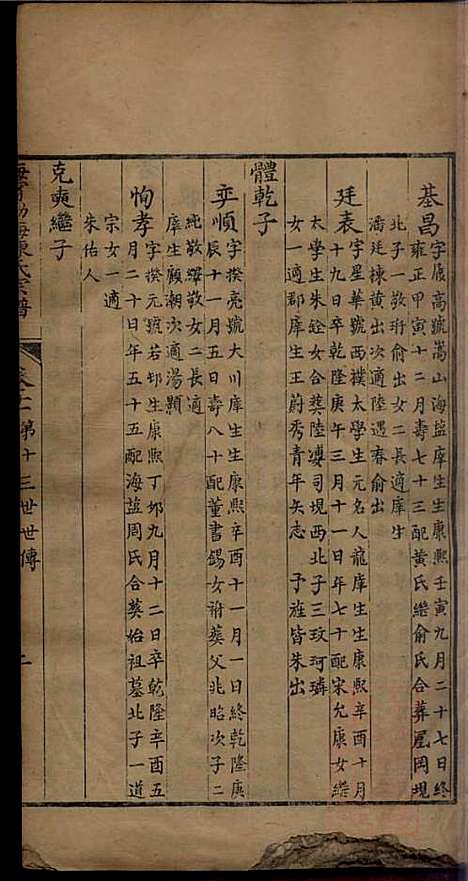 基昌 字展高號嵩山海盐庠生生康熙壬寅九月二十七日终
雍正甲寅十二月壽七十三配黄氏継俞氏合葬屠岡堍
北子一敬珩俞出女二長適庠生
潘廷棟黄出次適陸遇春俞出
廷表 字星華號西樸太學生元名人龍庠生生康熙辛酉十月
十九日卒乾隆庚午三月十一日年七十配宋允康女継
太學生朱銓女合葵陸凄司堍西北子三玫珂璘
女一適郡庠生王蔚秀青年矢志 予旌皆朱出
體乾子
弈順 字揆亮號大川庠生生康熙辛酉十一月一日終乾隆庚
辰十一月五日壽八十配董書錫女祔葵父兆昭次子二
純敬燡敬女二長適
庠生顧潮次適湯顥
恂孝 字揆元號若邨生康熙丁卯九月十二日卒乾隆辛酉五
月二十日年五十五配海盐周氏合葵始祖墓北子一道
宗女一適
朱佑人
克爽繼子
海寧渤海陳氏宗譜
卷十二第十三世世傳
二